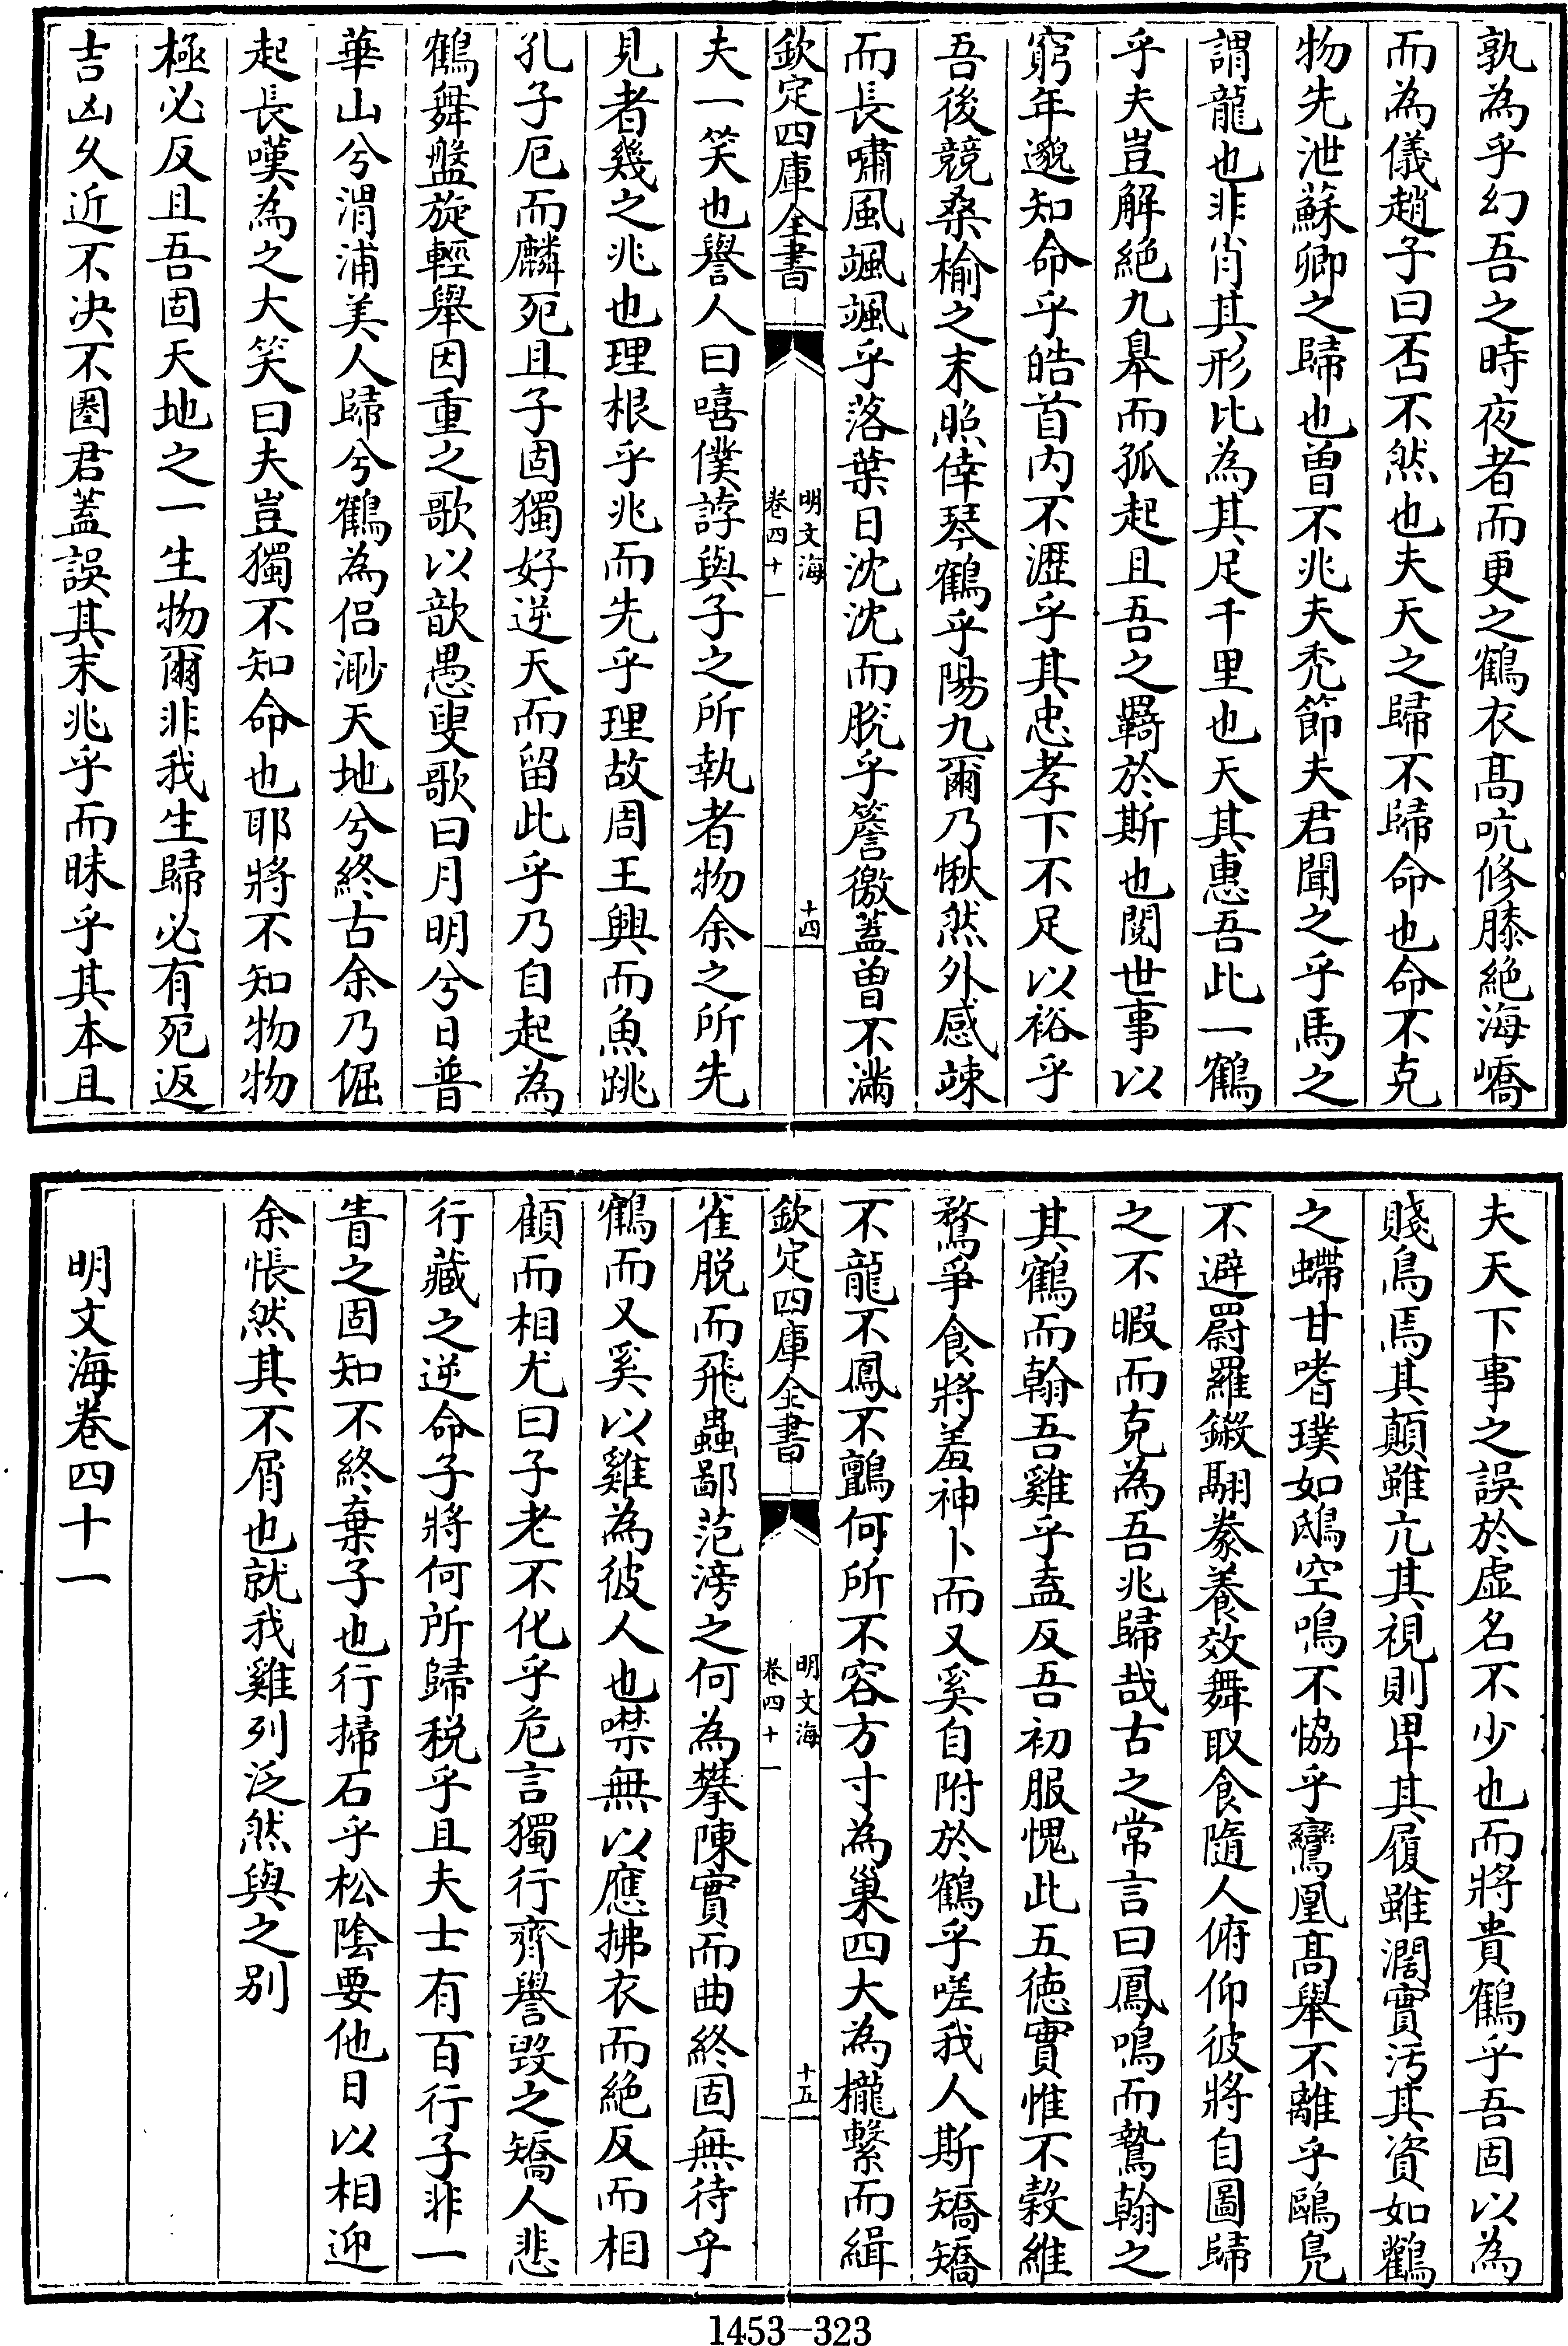 孰為乎幻吾之時夜者而更之鶴衣髙吭修膝絶海嶠
而為儀趙子曰否不然也夫天之歸不歸命也命不克
物先泄蘇卿之歸也曽不兆夫秃節夫君聞之乎馬之
謂龍也非肖其形比為其足千里也天其惠吾此一鶴
乎夫豈解絶九臯而孤起且吾之羇於斯也閲世事以
窮年邈知命乎皓首内不瀝乎其忠孝下不足以裕乎
吾後競桑榆之末照倖琴鶴乎陽九爾乃愀然外感竦
而長嘯風颯颯乎落葉日沈沈而脱乎簷徼蓋曽不滿
欽定四庫全書
明文海
卷四十一
十四
夫一笑也譽人曰嘻僕誖與子之所執者物余之所先
見者幾之兆也理根乎兆而先乎理故周王興而魚跳
孔子厄而麟死且子固獨好逆天而留此乎乃自起為
鶴舞盤旋輕舉因重之歌以歆愚叟歌曰月明兮日普
華山兮渭浦美人歸兮鶴為侣渺天地兮終古余乃倔
起長嘆為之大笑曰夫豈獨不知命也耶將不知物物
極必反且吾固天地之一生物爾非我生歸必有死返
吉凶久近不决不圏君蓋誤其末兆乎而昧乎其本且
夫天下事之誤於虚名不少也而將貴鶴乎吾固以為
賤鳥焉其顛雖亢其視則卑其履雖濶實汚其資如鸛
之螮甘嗜璞如鴟空鳴不恊乎鸞凰髙舉不離乎鷗鳧
不避罻羅鎩翮豢養效舞取食隨人俯仰彼將自圖歸
之不暇而克為吾兆歸哉古之常言曰鳳鳴而鷙翰之
其鶴而翰吾雞乎盍反吾初服愧此五徳實惟不榖維
鶩爭食將羞神卜而又奚自附於鶴乎嗟我人斯矯矯
不龍不鳳不鸇何所不容方寸為巢四大為櫳繫而緝
欽定四庫全書
明文海
卷四十一
十五
雀脱而飛蟲鄙范滂之何為攀陳實而曲終固無待乎
鶴而又奚以雞為彼人也噤無以應拂衣而絶反而相
顧而相尤曰子老不化乎危言獨行齊譽毁之矯人悲
行藏之逆命子將何所歸税乎且夫士有百行子非一
眚之固知不終棄子也行掃石乎松陰要他日以相迎
余悵然其不屑也就我雞列泛然與之别
明文海卷四十一
1453-323